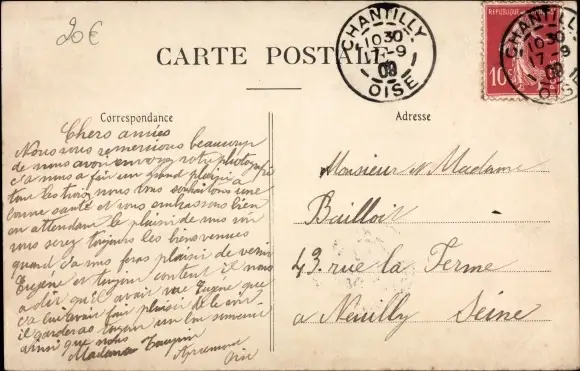 20€
CARTE POSTALE
CHANTILLY
10 30
17-9
09
OISE
REPUBLIQUE
10
CHANTILLY
10 30
17-9
09
OISE
Correspondance
Adresse
Chers amies
Nous vous remersions beaucoup
de nous avoir envoyez votre photografie
ça nous a fair un grand plaisir a
tous les trois nous vous souhaitons une
bonne santé et vous embrassons bien
en attendant le plaisir de vous voir
vous serez toujours les bienvenues
quand ça vous feras plaisir de venir
Eugène et toujour content il nous
a dit qu'il avair vue Eugène que
ça lui avair fair plaisir de le voir
il garderas toujour un bon souvenir
ainsi que nous
Madame
Apremont
Oise
Monsieur et Madame
43. rue la Ferme
a Neuilly Seine